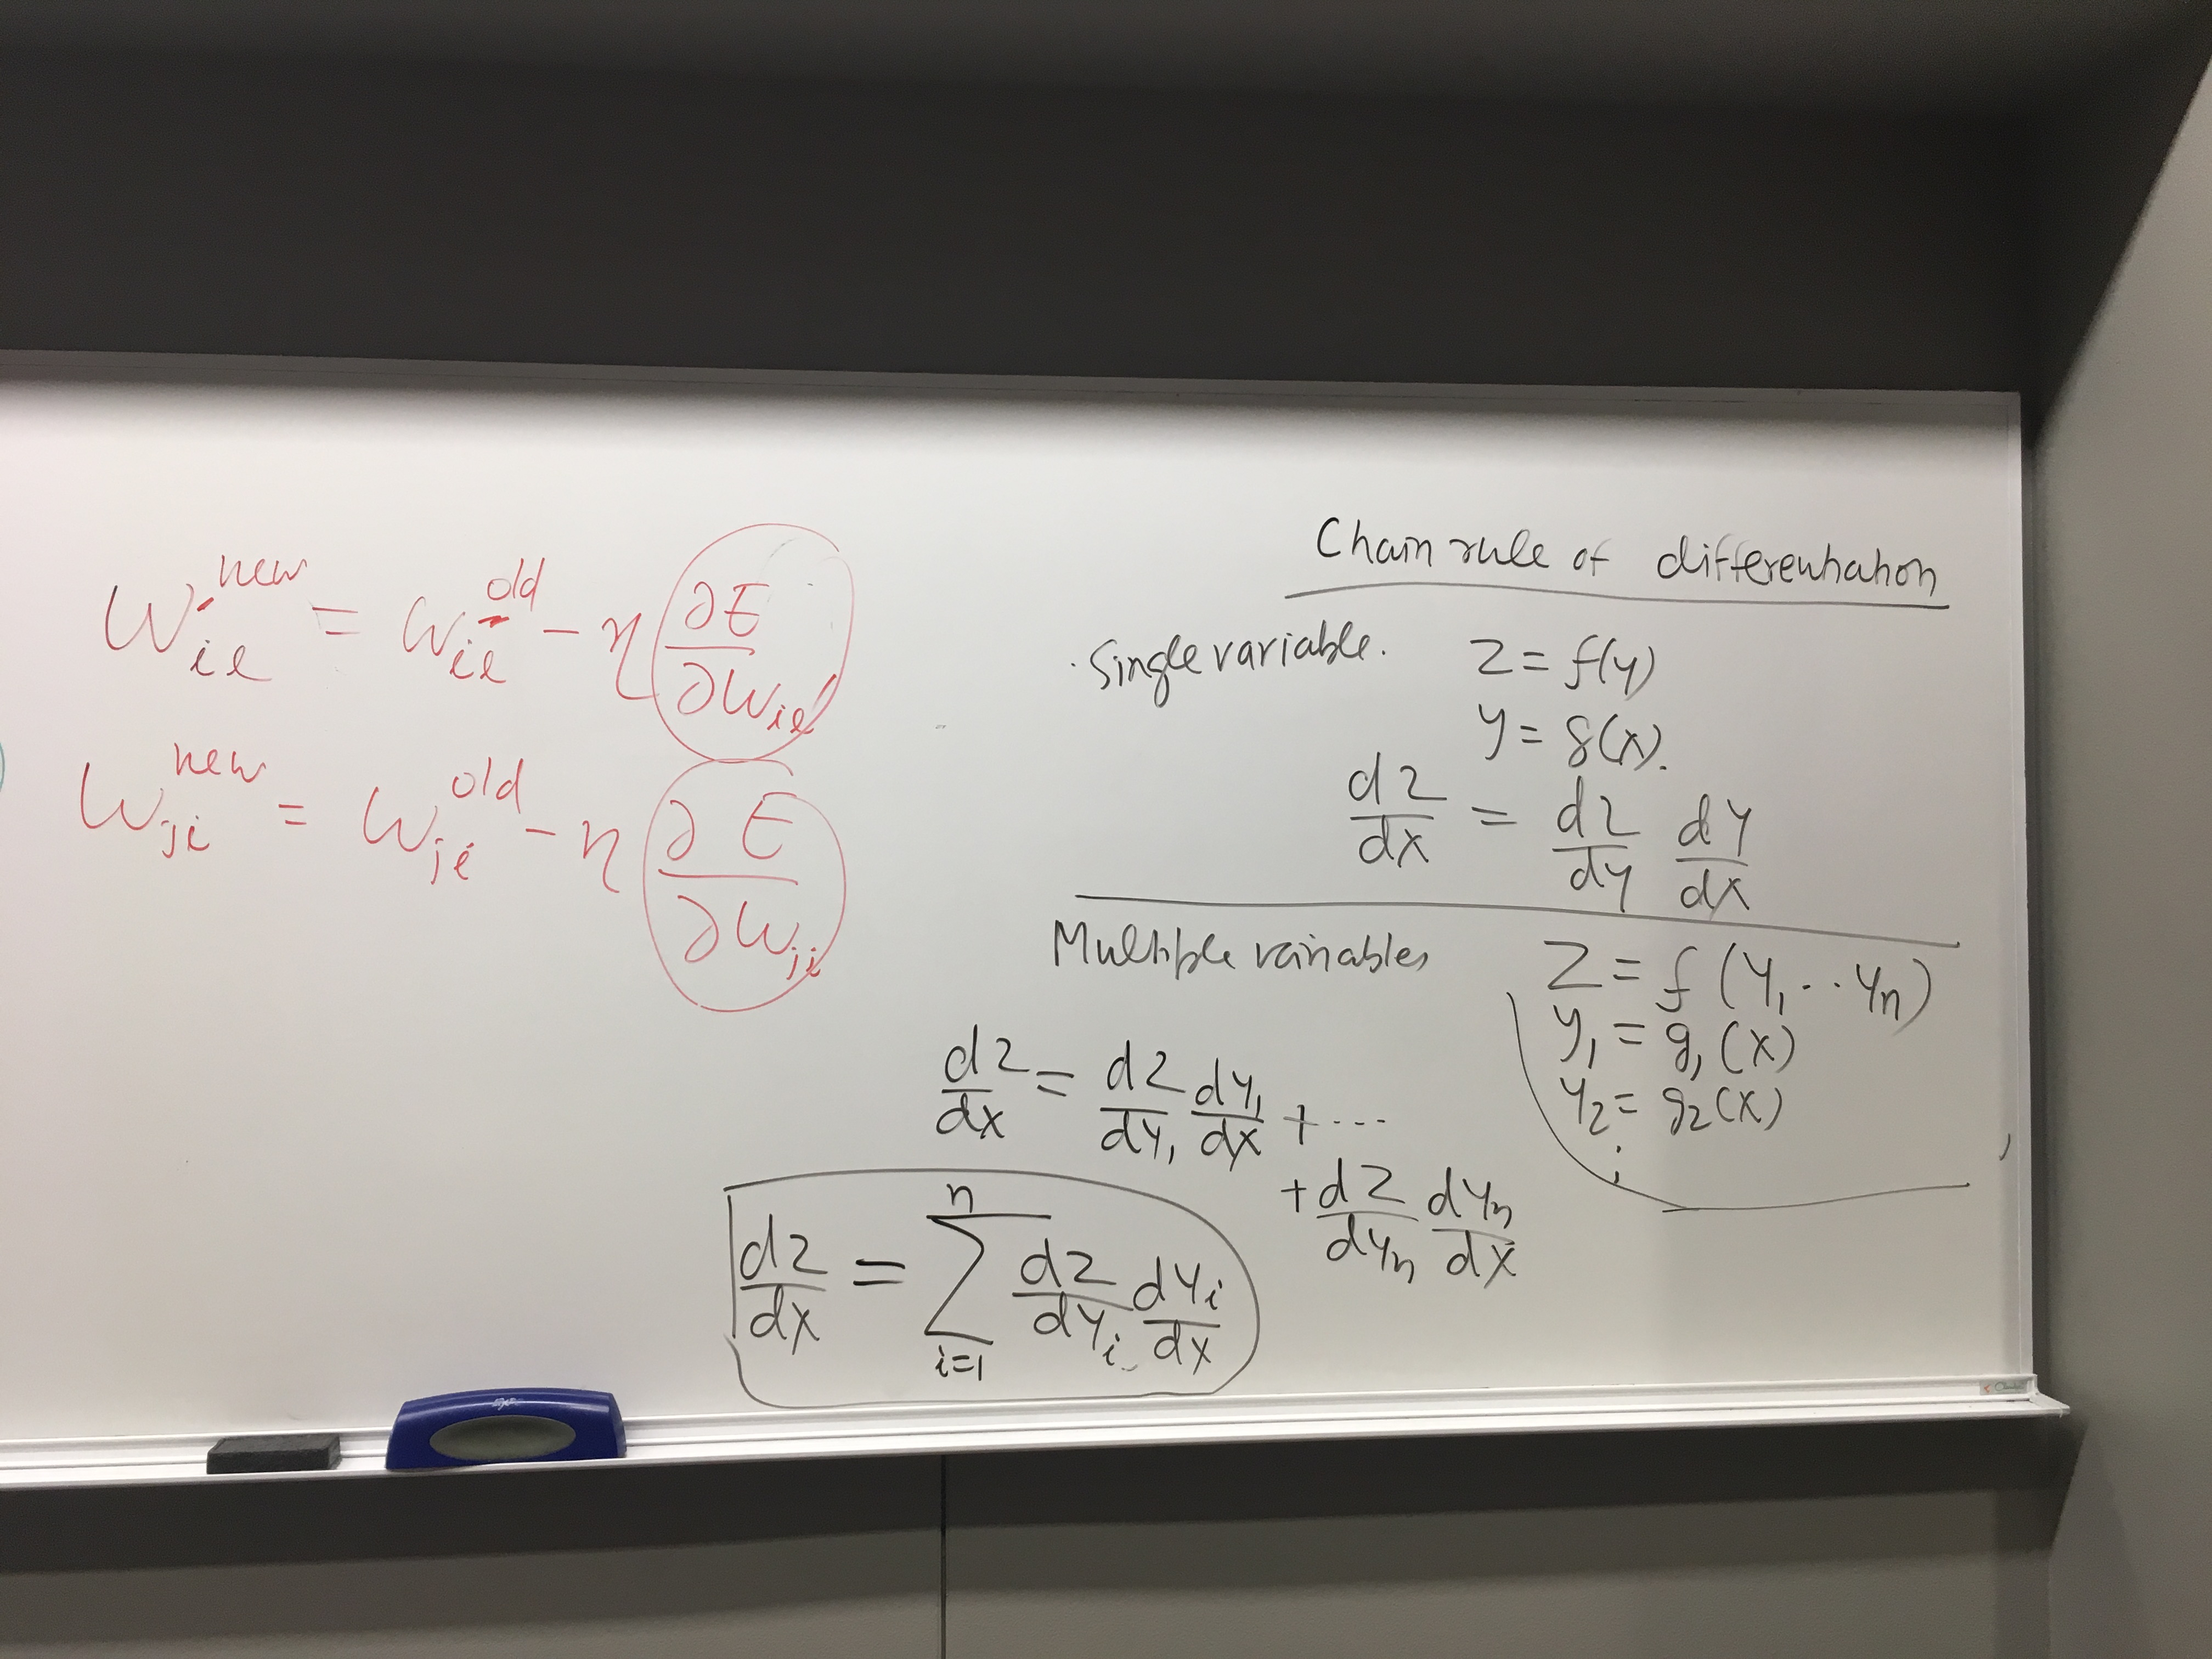 W_il^new = W_il^old - η ∂E/∂W_il
W_ji^new = W_ji^old - η ∂E/∂W_ji
Chain rule of differentiation
· Single variable. Z = f(y)
y = g(x).
dz/dx = dz/dy dy/dx
Multiple variables Z = f(y₁, .. yₙ)
y₁ = g₁(x)
y₂ = g₂(x)
⋮
dz/dx = dz/dy₁ dy₁/dx + ...
+ dz/dyₙ dyₙ/dx
dz/dx = Σ_{i=1}^{n} dz/dy_i dy_i/dx